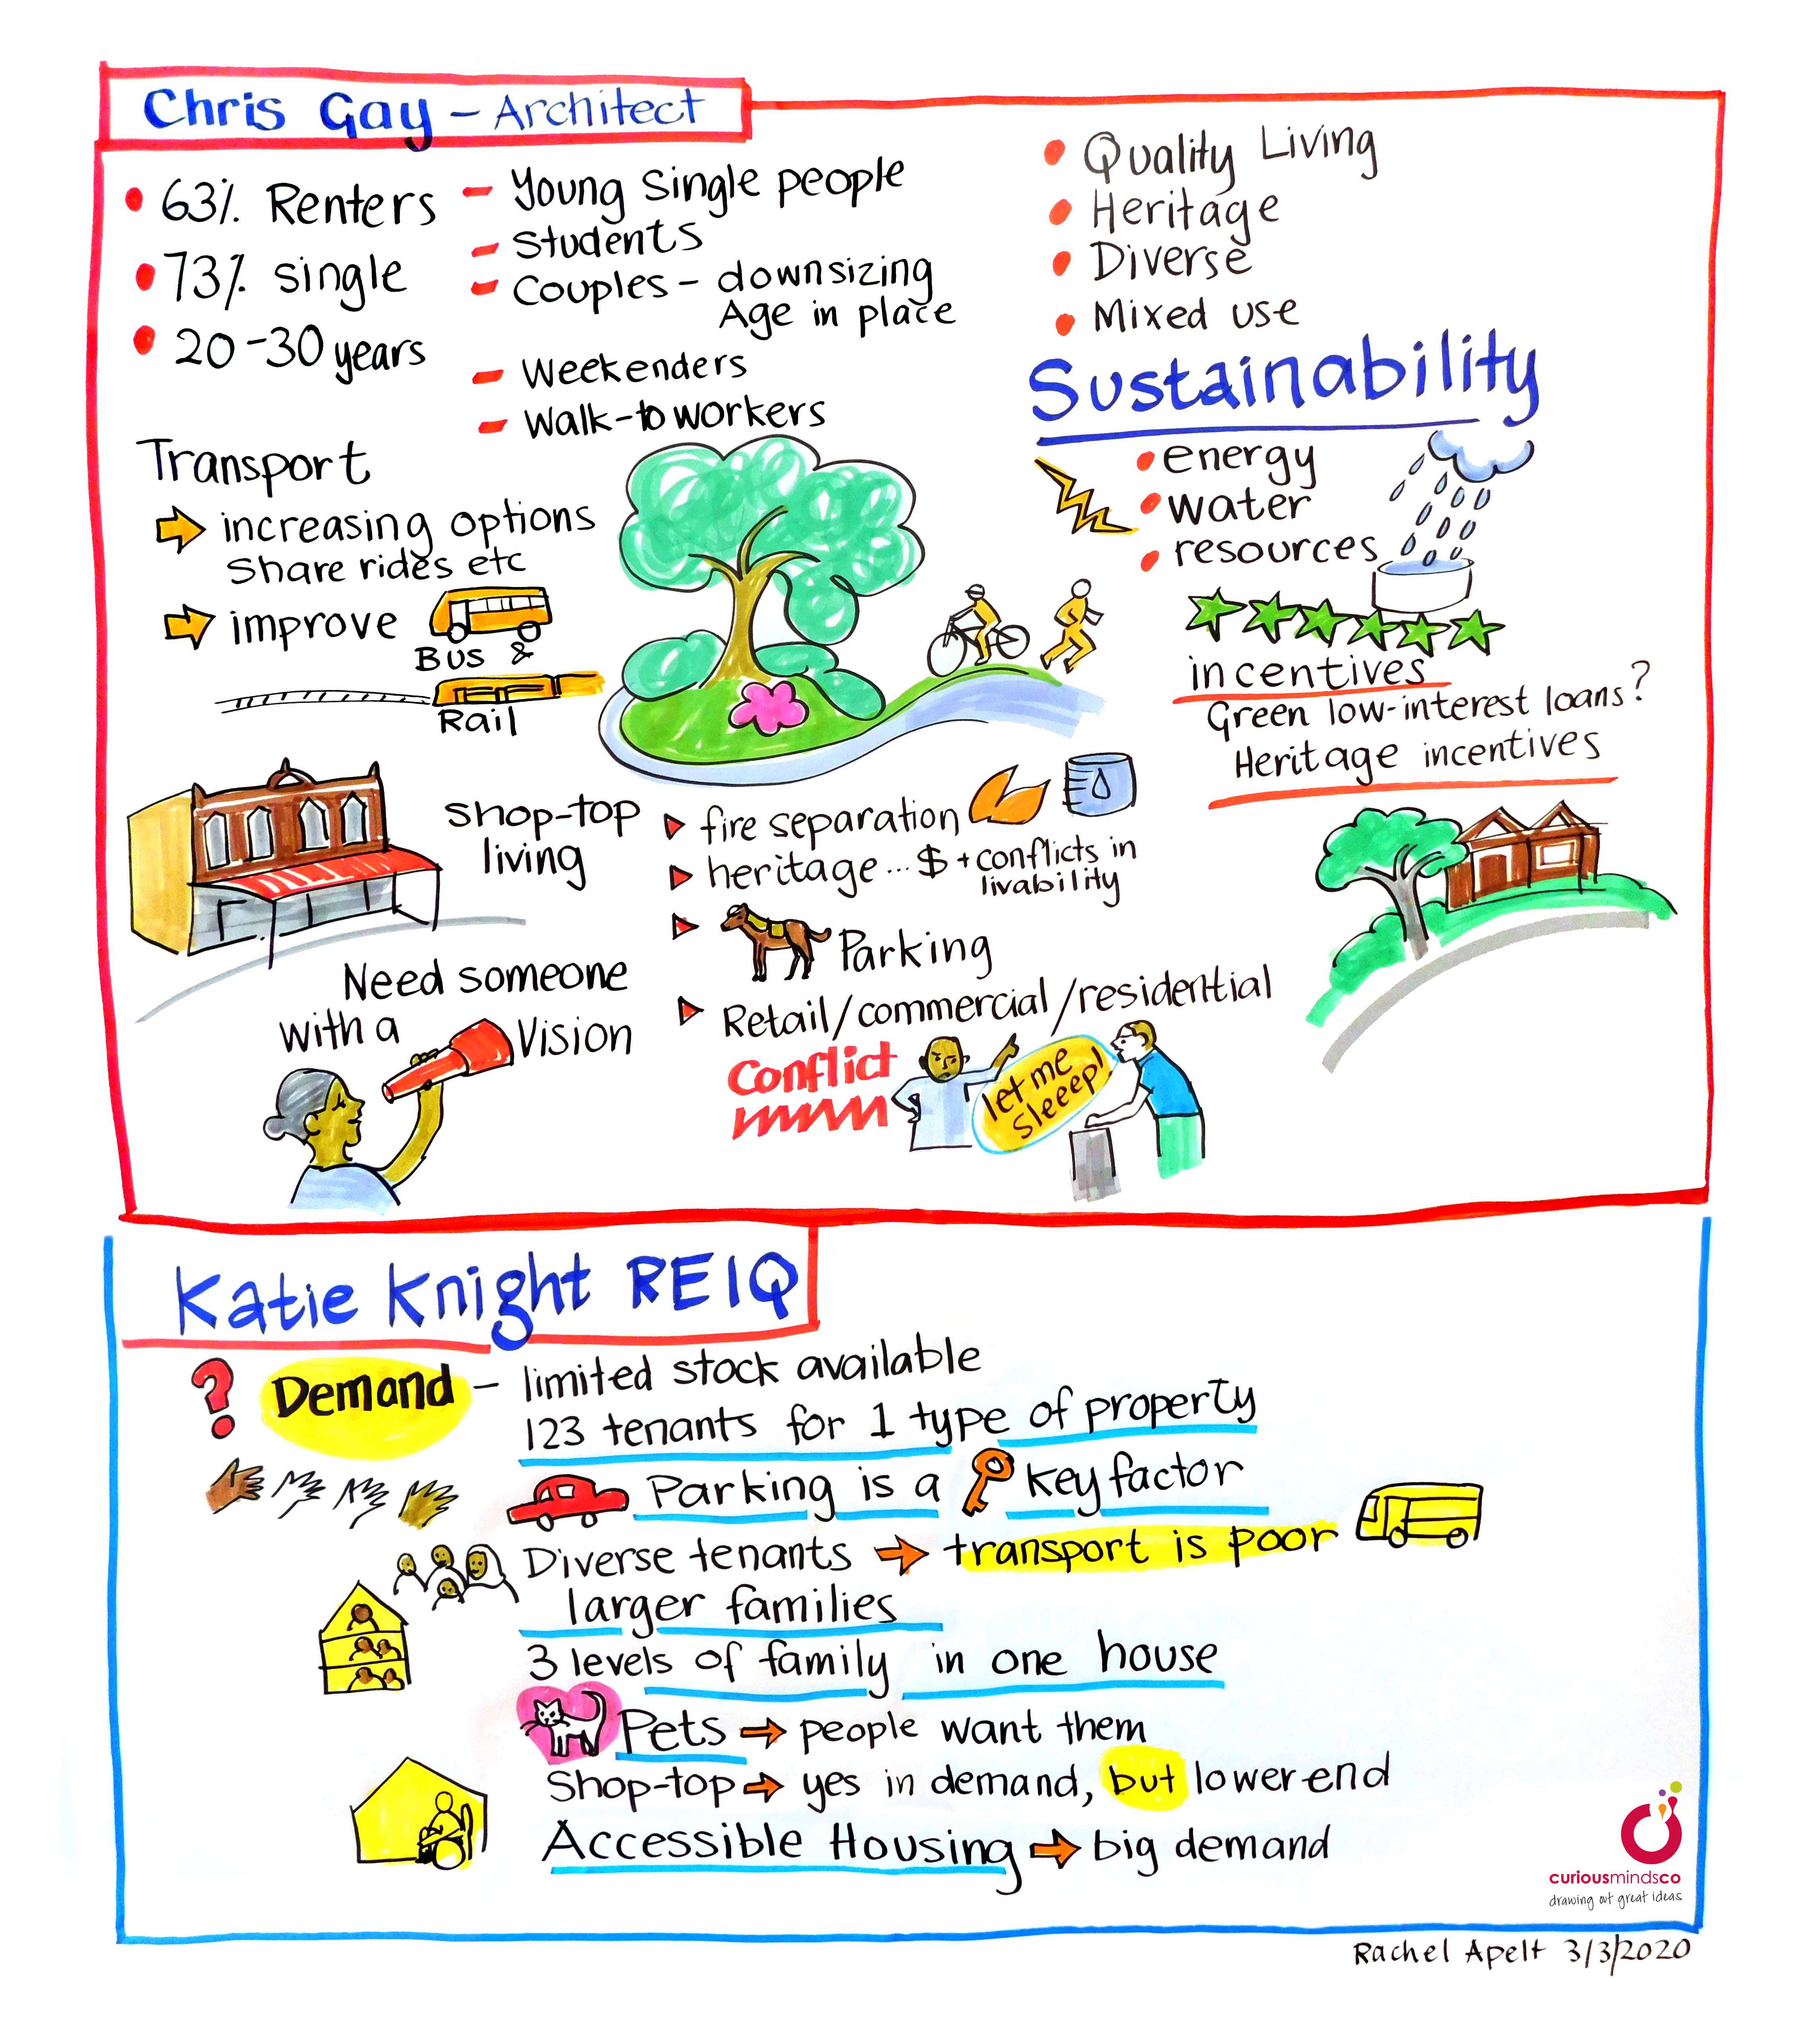 Chris Gay - Architect
• 63% Renters
• 73% single
• 20-30 years
- Young Single people
- Students
- Couples - downsizing
Age in place
- Weekenders
- Walk-to workers
• Quality Living
• Heritage
• Diverse
• Mixed use
Sustainability
• energy
• water
• resources
incentives
Green low-interest loans?
Heritage incentives
Transport
increasing options
Share rides etc
improve
Bus &
Rail
Shop-top
living
fire separation
heritage... $ + conflicts in
livability
Parking
Retail/commercial/residential
Conflict
let me
sleeep!
Need someone
with a Vision
Katie Knight REIQ
? Demand - limited stock available
123 tenants for 1 type of property
Parking is a key factor
Diverse tenants → transport is poor
larger families
3 levels of family in one house
Pets → people want them
Shop-top → yes in demand, but lower end
Accessible Housing → big demand
curiousmindsco
drawing out great ideas
Rachel Apelt 3/3/2020